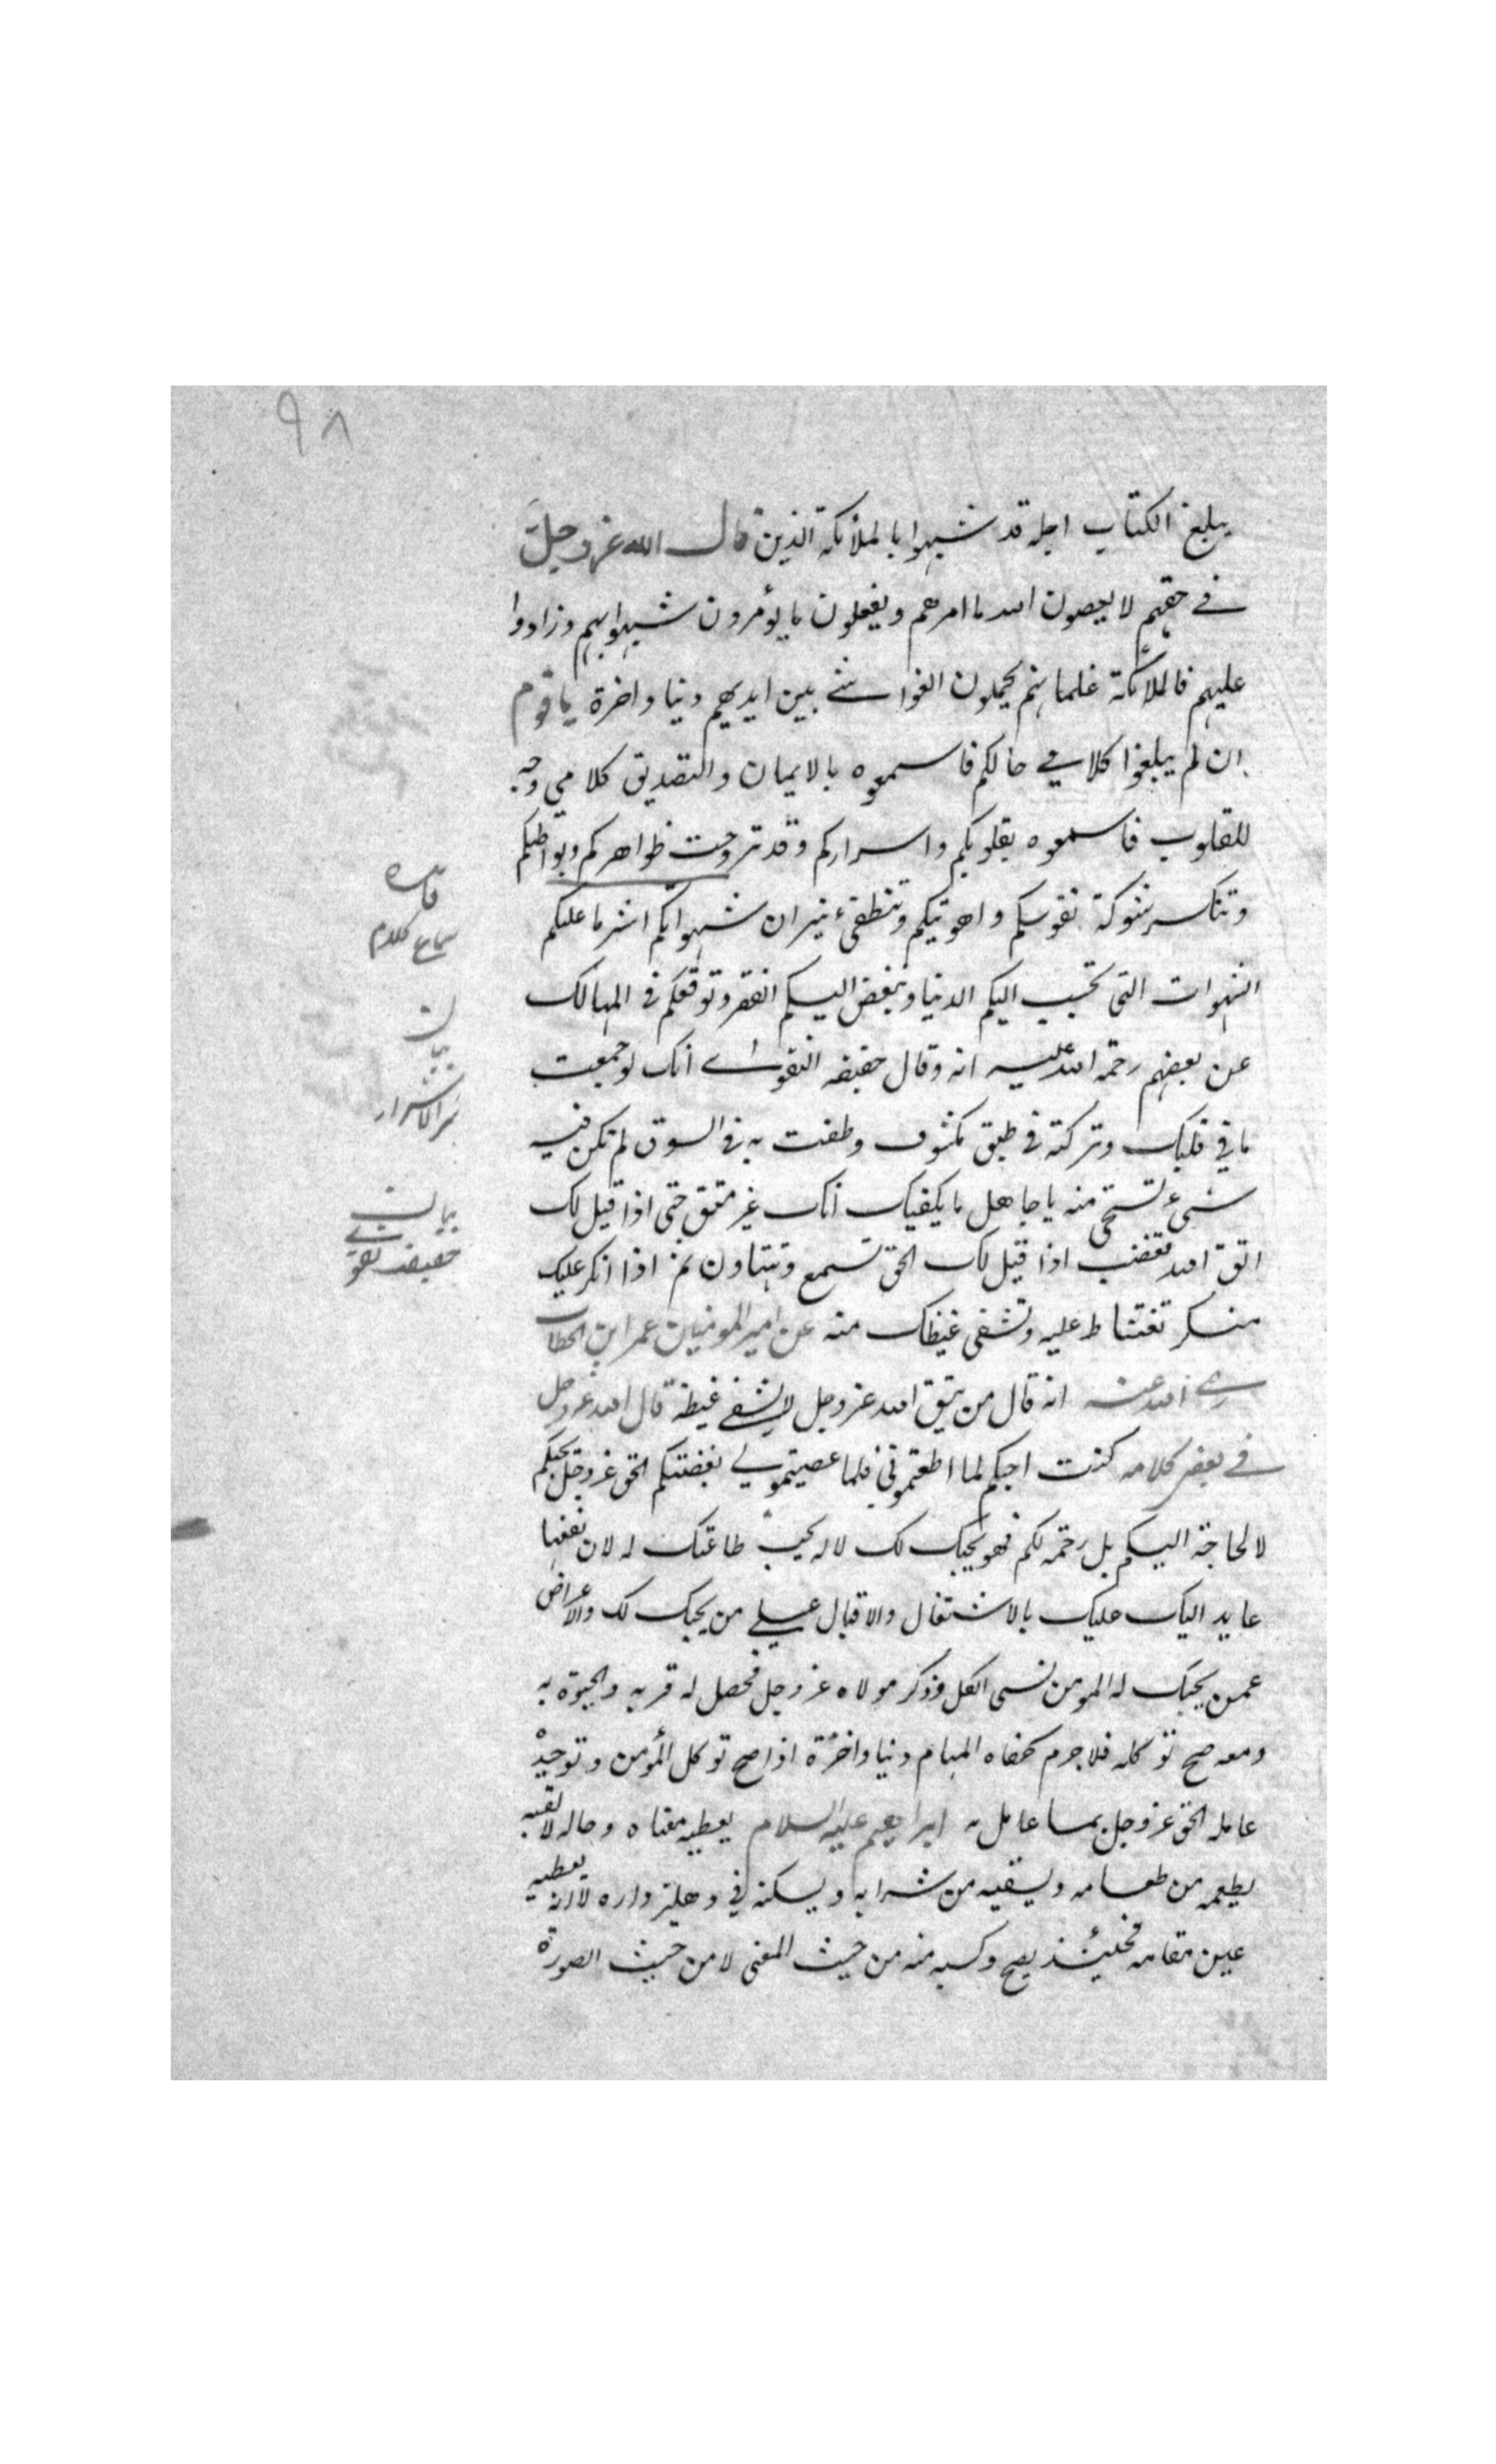 ٩٨
يبلغ الكتاب اجله قد شبهوا بالملأئكة الذين قال الله عز وجلّ
في حقهم لا يعصون الله ما امرهم ويفعلون ما يؤمرون شبهوا بهم وزادوا
عليهم فالملائكة غلمانهم يحملون الغواشي بين ايديهم دنيا واخرة يا قوم
ان لم يبلغوا كلامي حالكم فاسمعوه بالايمان والتصديق كلامي وجه
للقلوب فاسمعوه بقلوبكم واسراركم وقد تروحت ظواهركم وبواطنكم
وتنكسر شوكة نفوسكم واهويتكم وتنطفىء نيران شهواتكم اشر ما عليكم
الشهوات التي تحبب اليكم الدنيا وتبغض اليكم الفقر وتوقعكم في المهالك
عن بعضهم رحمة الله عليه انه وقال حقيقه التقوى انك لو جمعت
ما في قلبك وتركته في طبق مكشوف وطفت به في السوق لم تكن فيه
شىء تستحي منه يا جاهل ما يكفيك انك غير متق حتى اذا قيل لك
اتق الله تغضب اذا قيل لك الحق تسمع وتتهاون ثم اذا انكر عليك
منكر تغتاظ عليه وتشفى غيظك منه عن امير المومنيان عمر ابن الخطاب
رضي الله عنه انه قال من يتق الله عز وجل لا يشفي غيظه قال الله عز وجل
في بعض كلامه كنت احبكم لما اطعتموني فلما عصيتموني بغضتكم الحق عز وجل يحبكم
لا لحاجة اليكم بل رحمة لكم فهو يحبك لك لا له يحب طاعتك له لان نفعها
عايد اليك عليك بالاشتغال والاقبال على من يحبك لك والاعراض
عمن يحبك له المومن نسى الكل وذكر مولاه عز وجل فحصل له قربه والحيوة به
ومعه صح توكله فلا جرم كفاه المهام دنيا واخرة اذا صح توكل المؤمن وتوحيده
عامله الحق عز وجل بما عامل به ابراهيم عليه السلام يعطيه معناه وحاله لا لقبه
يطعمه من طعامه ويسقيه من شرابه ويسكنه في دهليز داره لا انه يعطيه
عين مقامه فحينئذ يصح وكسبه منه من حيث المعنى لا من حيث الصورة
فائده
سماع كلام
بيان
شر الاشرار
بيان
حقيقت تقوى